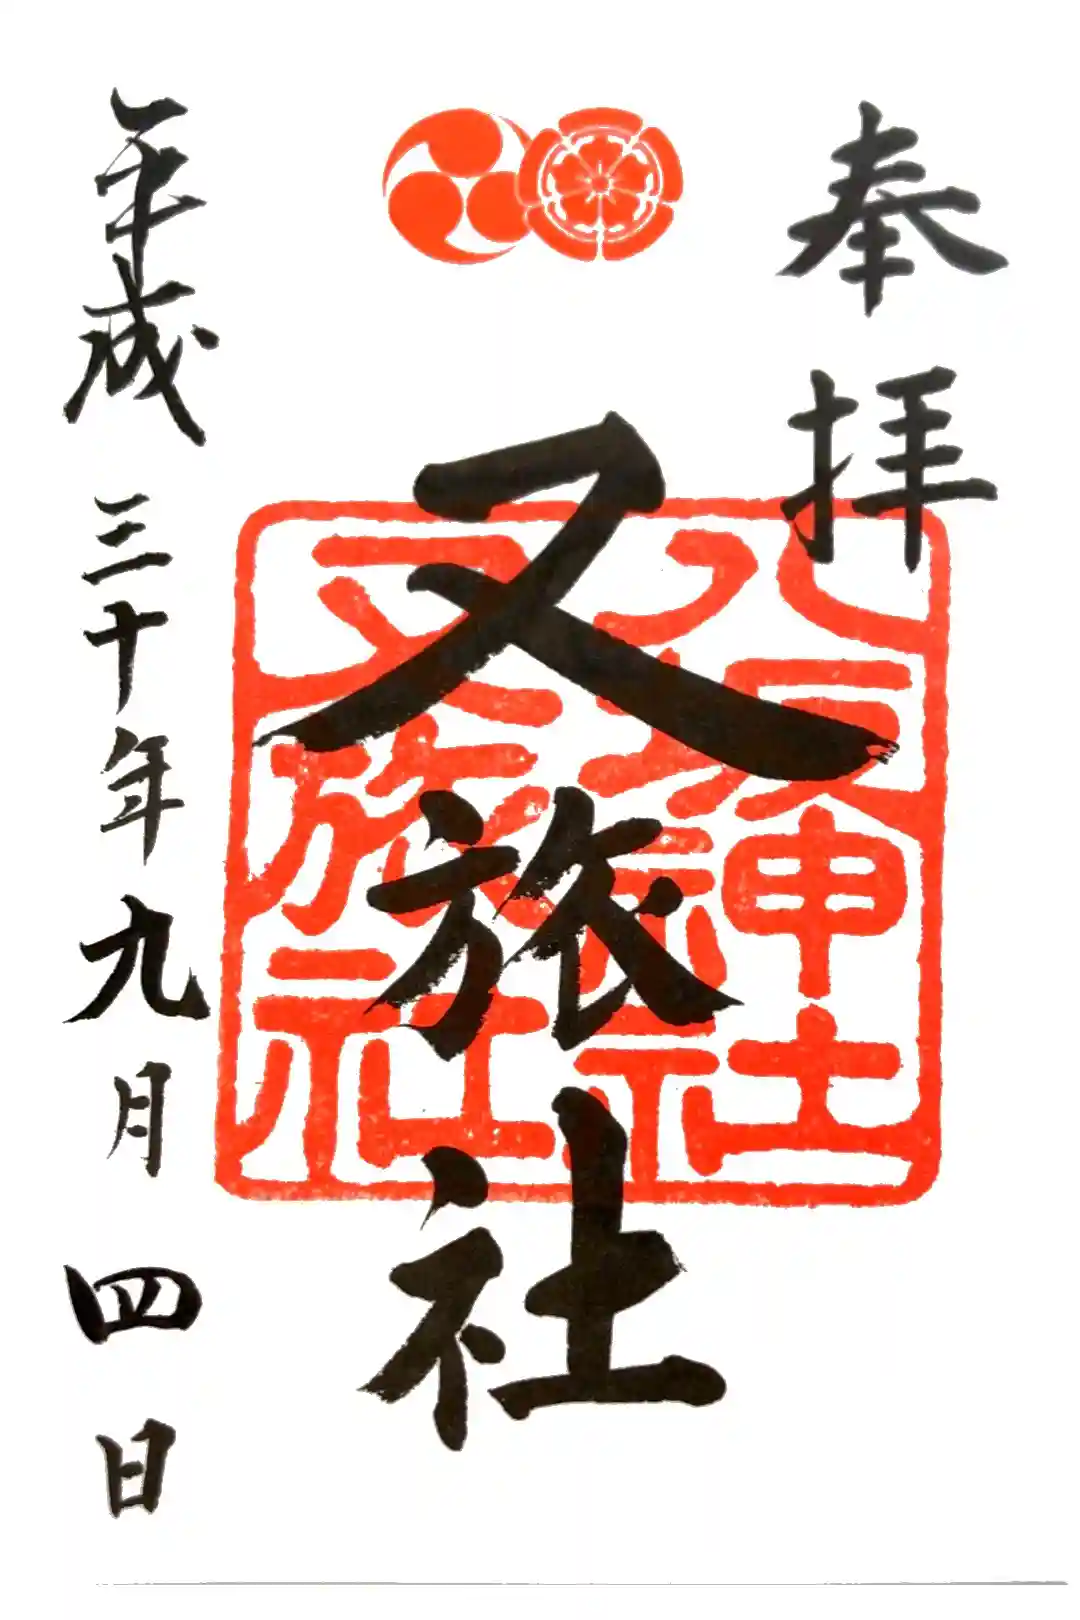 奉拝
八坂神社
又旅社
又旅社
平成三十年九月四日